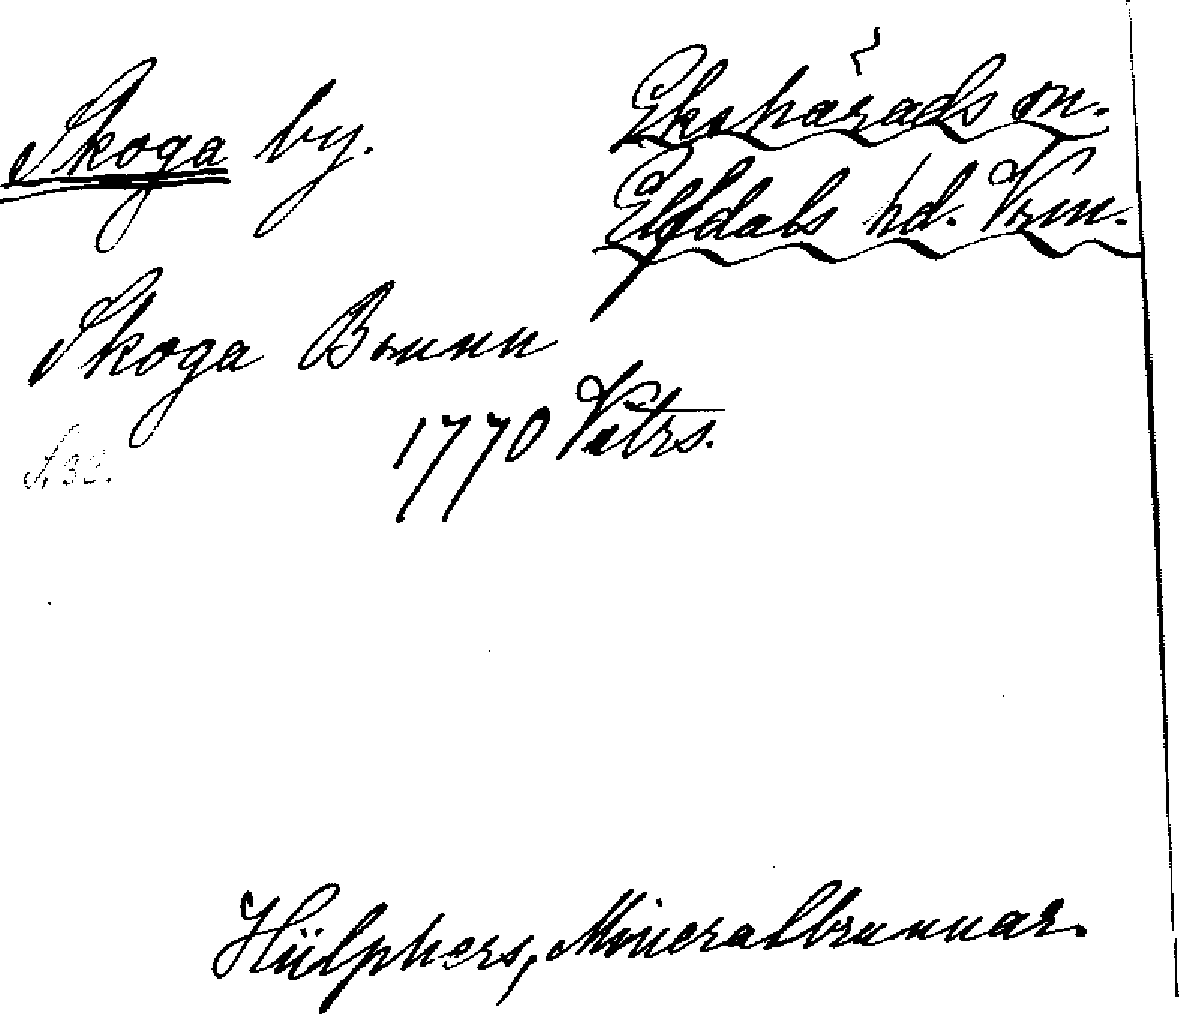 Skoga by.
Ekshärads sn.
Elfdals hd. Vrm.
Skoga Brunn
1770 Vitrs.
S. 32.
Hülphers, Mineralbrunnar.